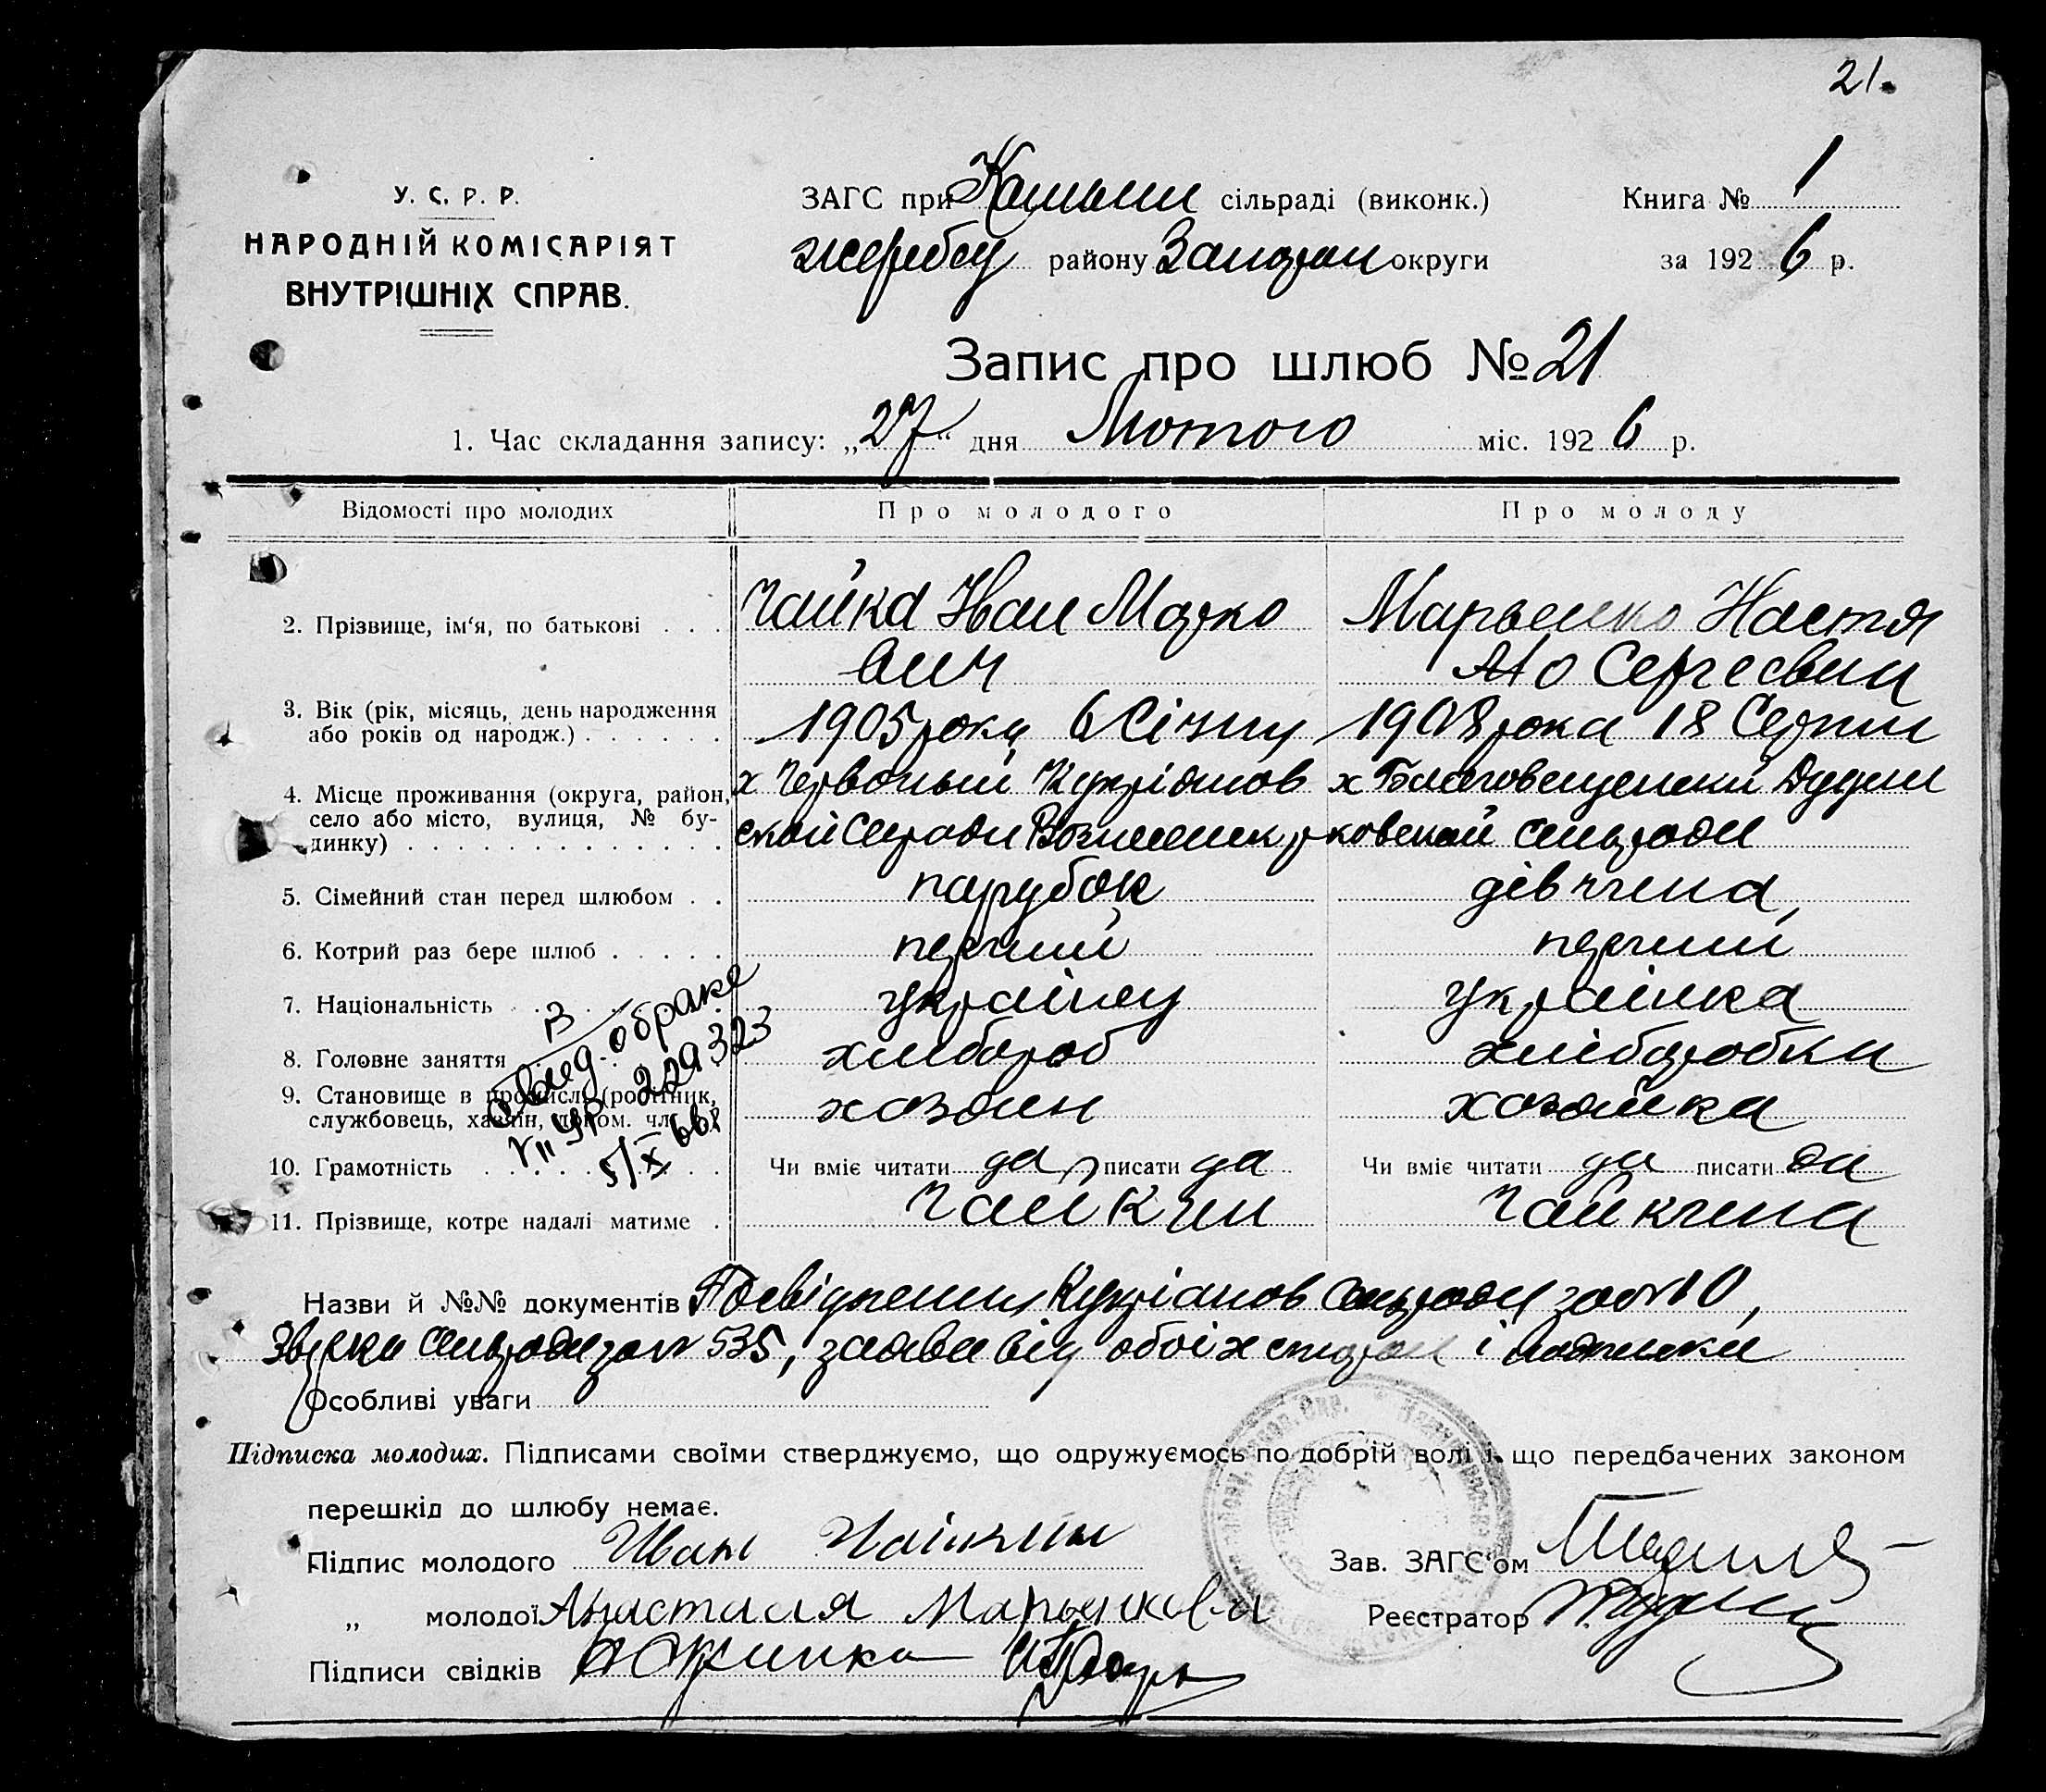 21.
У. С. Р. Р.
НАРОДНІЙ КОМІСАРІЯТ
ВНУТРІШНІХ СПРАВ.
ЗАГС при сільраді (виконк.)
жеребец району Запорож округи
Книга № 1
за 1926 р.
Запис про шлюб № 21
1. Час складання запису: „27“ дня Лютого міс. 1926 р.
Відомості про молодих Про молодого Про молоду
2. Прізвище, ім‘я, по батькові Чайка Иван Марко Марченко Настя
вич Сергеевна
3. Вік (рік, місяць, день народження 1905 року 6 Січня 1908 рока 18 Серпня
або років од народж.)
4. Місце проживання (округа, район, х Червоный х Благовещенский
село або місто, вулиця, № бу-
динку)
5. Сімейний стан перед шлюбом парубок дівчина
6. Котрий раз бере шлюб перший перший
7. Національність українец українка
8. Головне заняття хлибороб хлиборобка
9. Становище в промислі (робітник, хозяин хозяйка
службовець, хазяїн, допом. чл.
10. Грамотність Чи вміє читати да, писати да Чи вміє читати да писати да
11. Прізвище, котре надалі матиме Чайкин Чайкина
о браке
229323
Назви й №№ документів Посвідчення сельради за № 10,
сельради за № 535, заява від обоіх сторон і подписки
Особливі уваги
Підписка молодих. Підписами своїми стверджуємо, що одружуємось по добрій волі і що передбачених законом
перешкід до шлюбу немає.
Підпис молодого Иван Чайкин
„ молодої Анастасия Марченкова
Підписи свідків
Зав. ЗАГС‘ом
Реєстратор